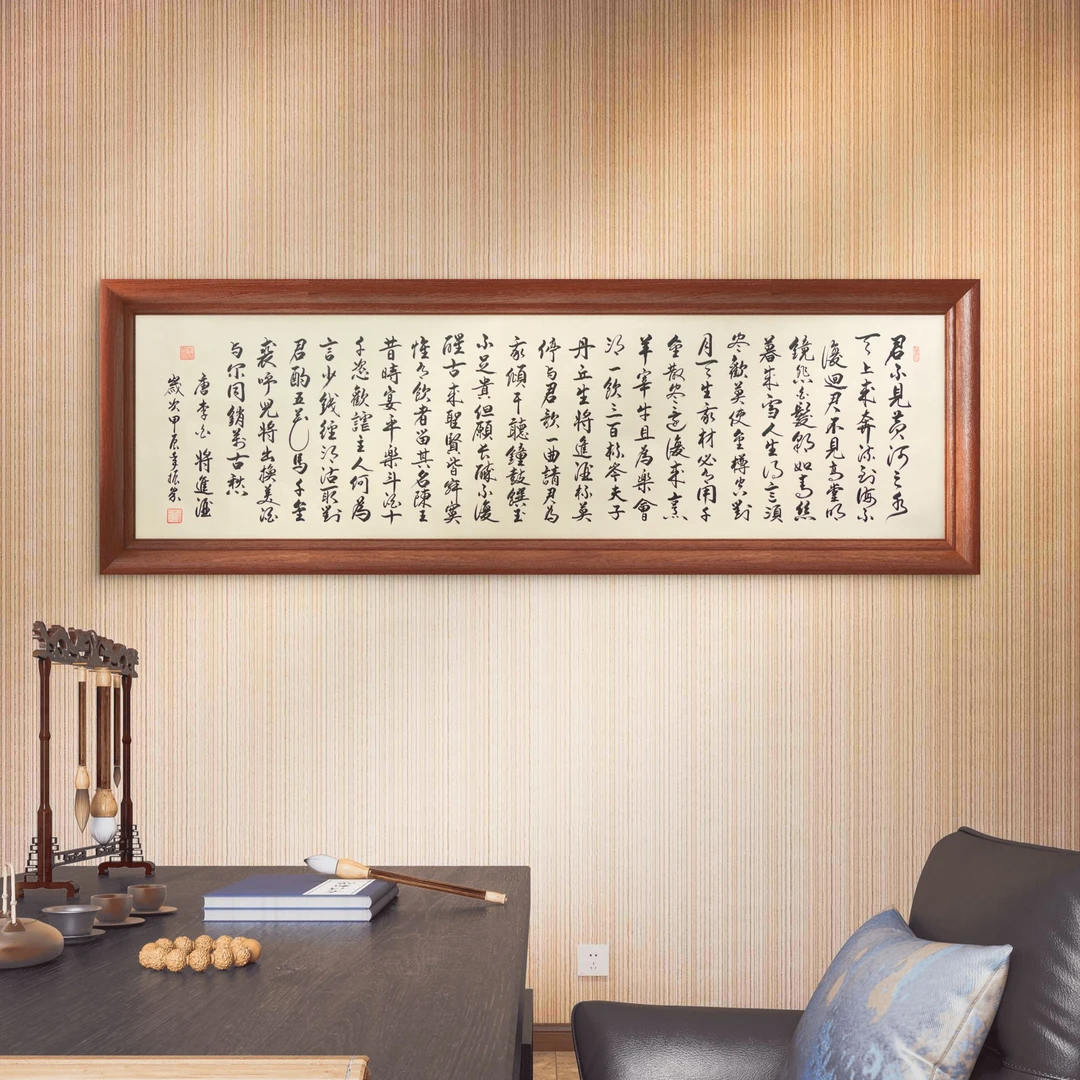 君不見黄河之水
天上来奔流到海不
復迴君不見高堂明
鏡悲白髮朝如青絲
暮成雪人生得意須
盡歡莫使金樽空對
月天生我材必有用千
金散盡還復来烹
羊宰牛且為樂會
須一飲三百杯岑夫子
丹丘生將進酒杯莫
停与君歌一曲請君為
我傾耳聽鐘鼓饌玉
不足貴但願長醉不復
醒古来聖賢皆寂寞
惟有飲者留其名陳王
昔時宴平樂斗酒十
千恣歡謔主人何為
言少錢徑須沽取對
君酌五花馬千金
裘呼兒將出換美酒
与尔同銷萬古愁
唐李白將進酒
歲次甲辰